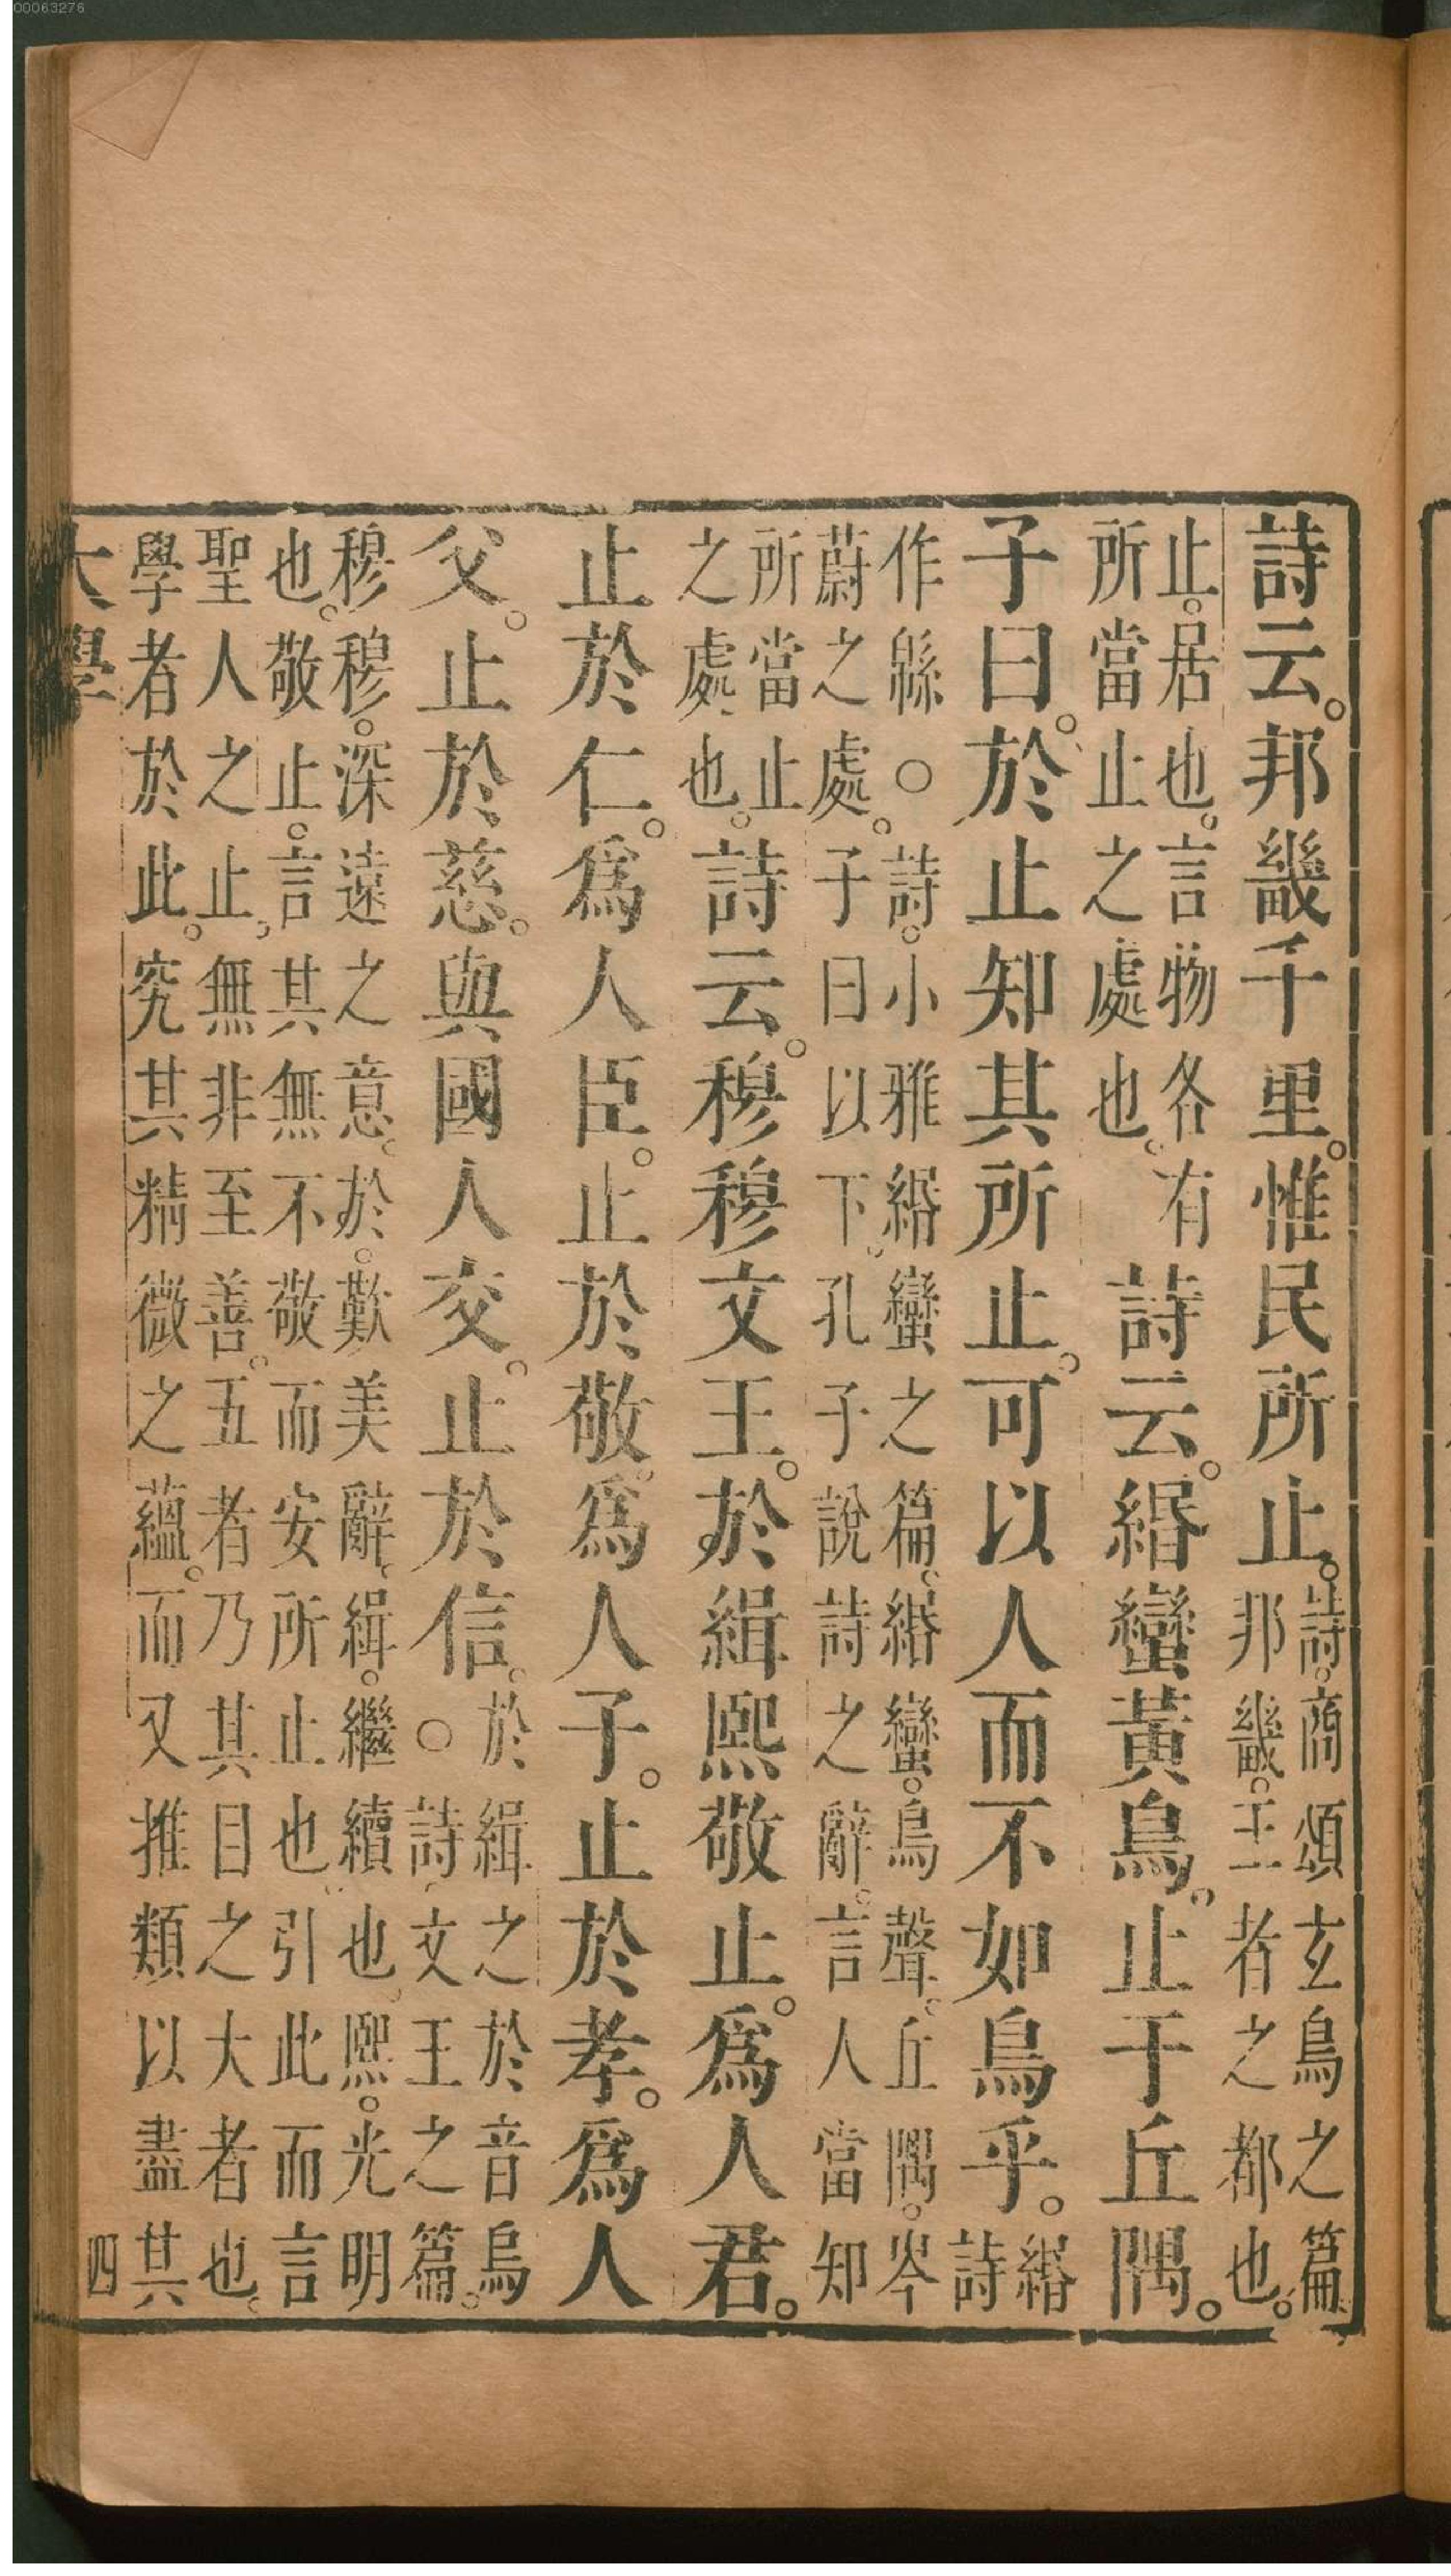 00063276
詩云。邦畿千里。惟民所止。
詩。商頌玄鳥之篇。
邦畿。王者之都也。
止。居也。言物各有
所當止之處也。
詩云。緡蠻黃鳥。止于丘隅。
子曰。於止知其所止。可以人而不如鳥乎。
緡
詩
作緜○詩。小雅緡蠻之篇。緡蠻。鳥聲。丘隅。岑
蔚之處。子曰以下。孔子說詩之辭。言人當知
所當止
之處也。
詩云。穆穆文王。於緝熙敬止。爲人君。
止於仁。爲人臣。止於敬。爲人子。止於孝。爲人
父。止於慈。與國人交。止於信。
於緝之於音烏
○詩。文王之篇。
穆穆。深遠之意。於。歎美辭。緝。繼續也。熙。光明
也。敬止。言其無不敬而安所止也。引此而言
聖人之止。無非至善。五者乃其目之大者也。
學者於此。究其精微之蘊。而又推類以盡其
大學
四